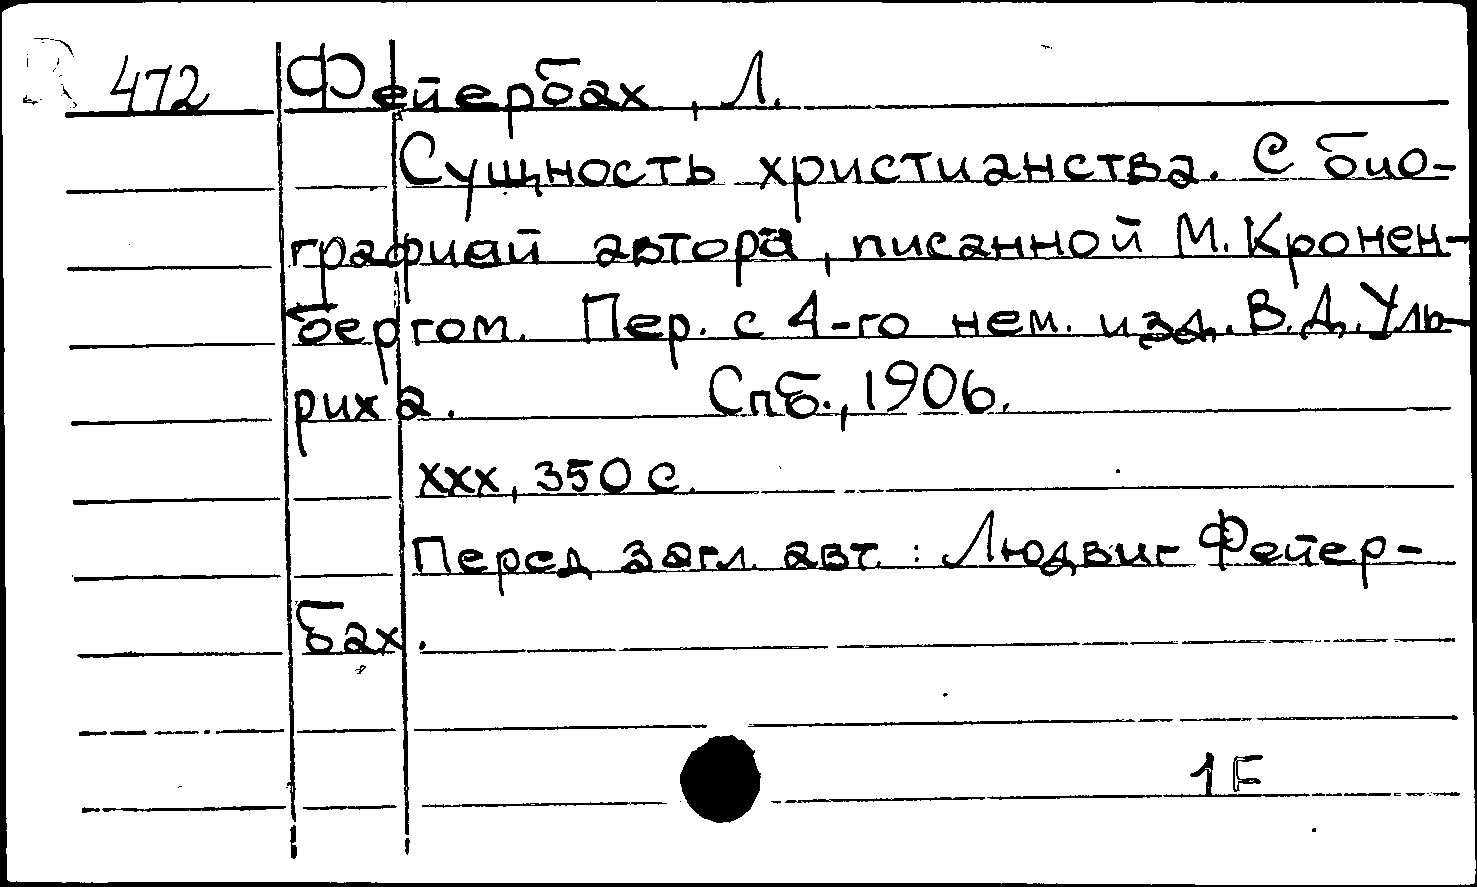 R 472 Фейербах, Л.
Сущность христианства. С био-
графией автора, писанной М. Кронен-
бергом. Пер. с 4-го нем. изд. В.Д. Уль-
риха. Спб., 1906.
XXX, 350 с.
Перед загл. авт. : Людвиг Фейер-
бах.
1F